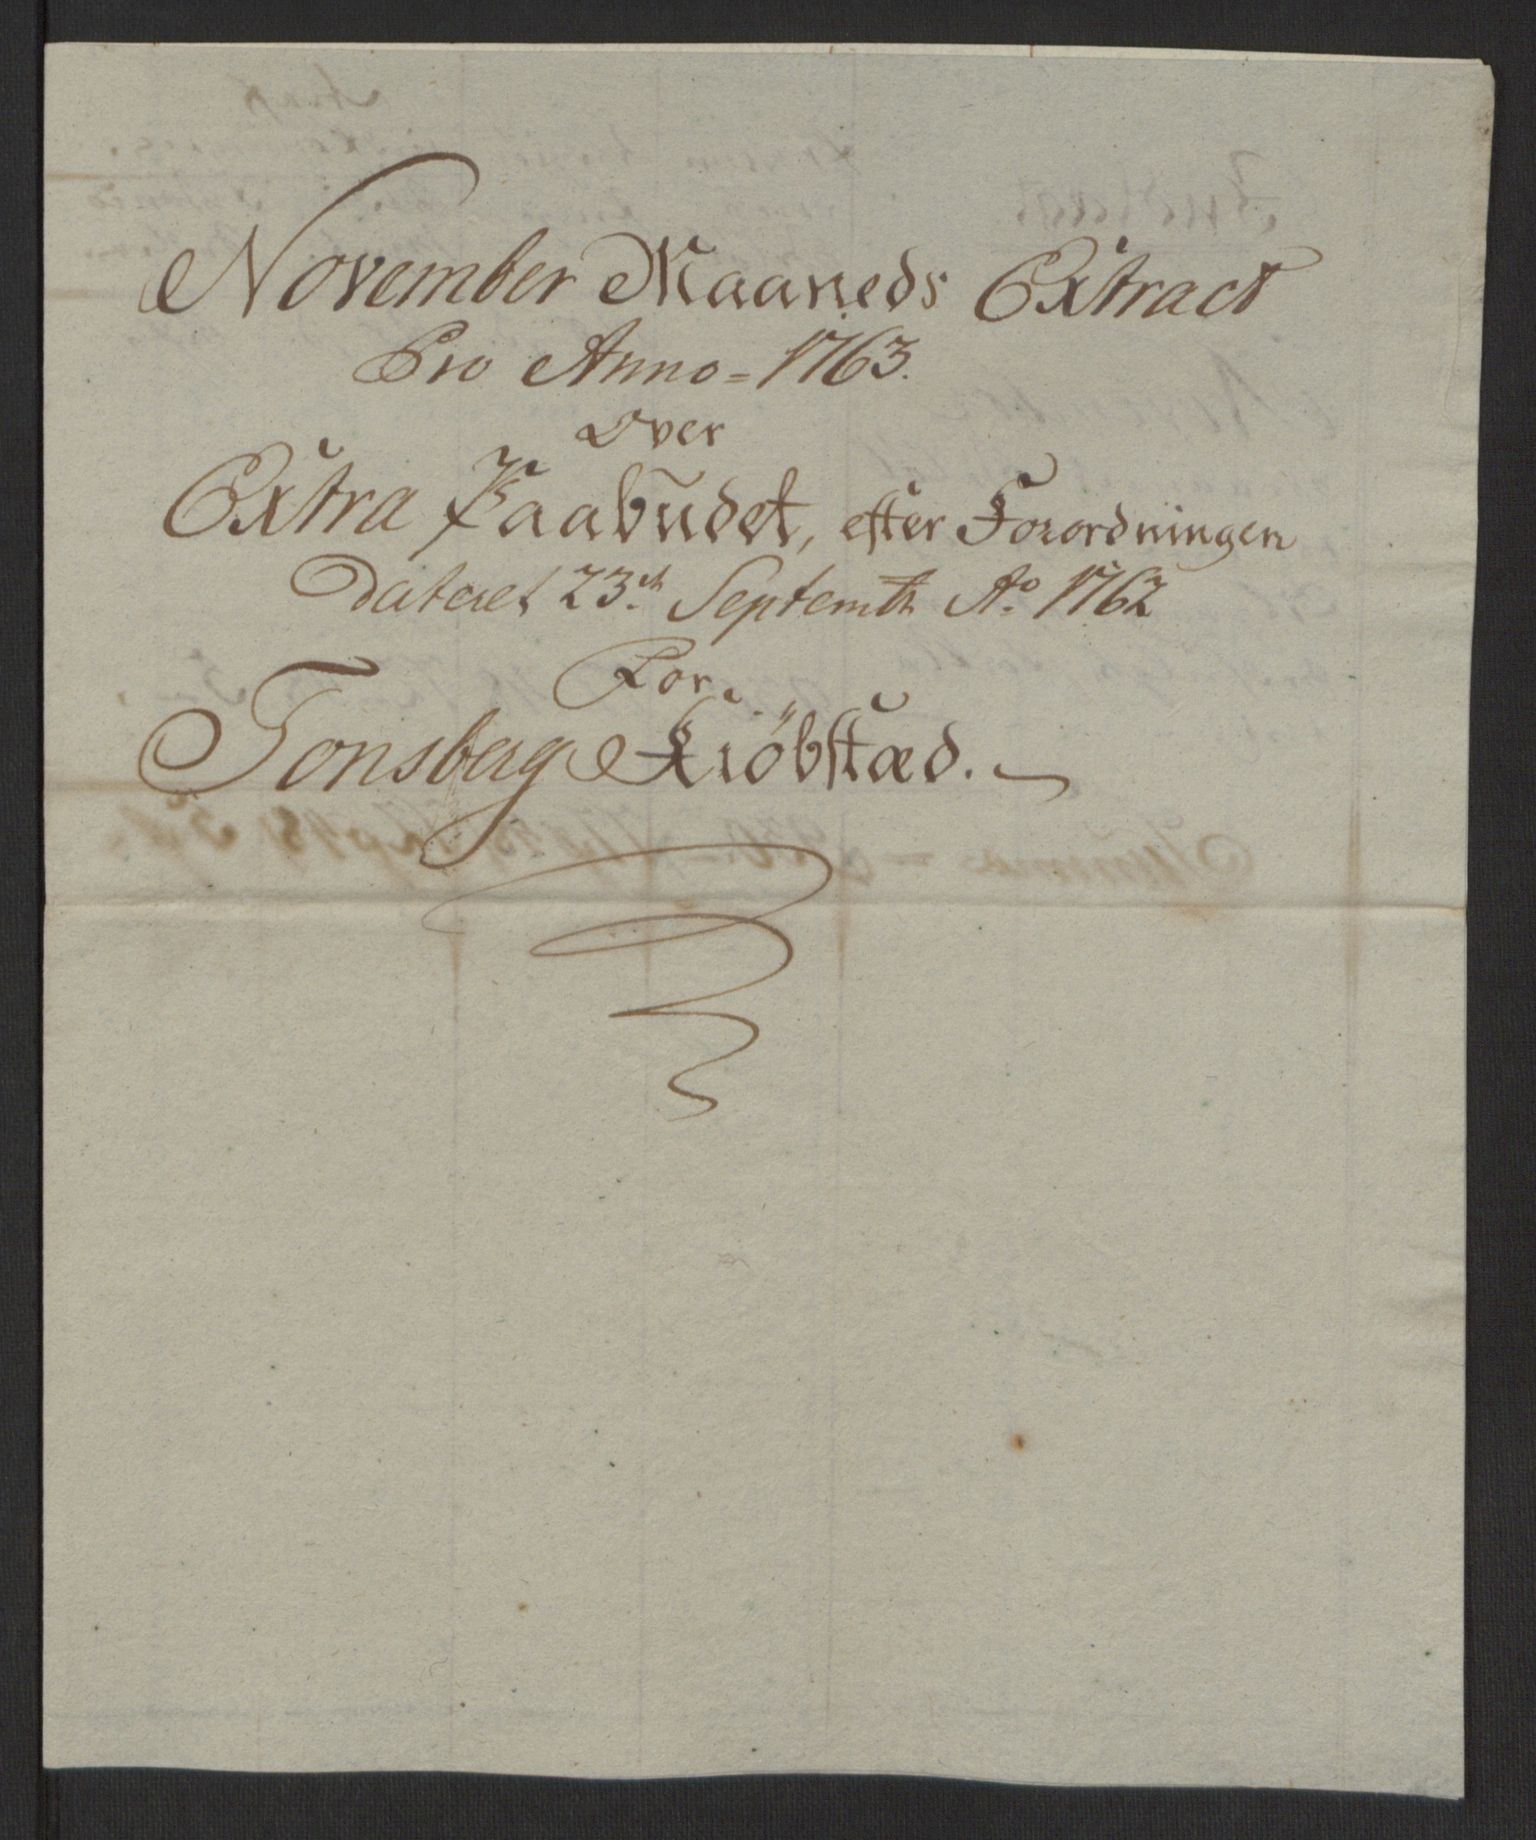 November Maaneds Extract
Pro Anno = 1763.
Over
Extra Paabudet, efter Forordningen
Dateret 23de Septembr Ao 1762
For
Tonsberg Kiöbstæd.